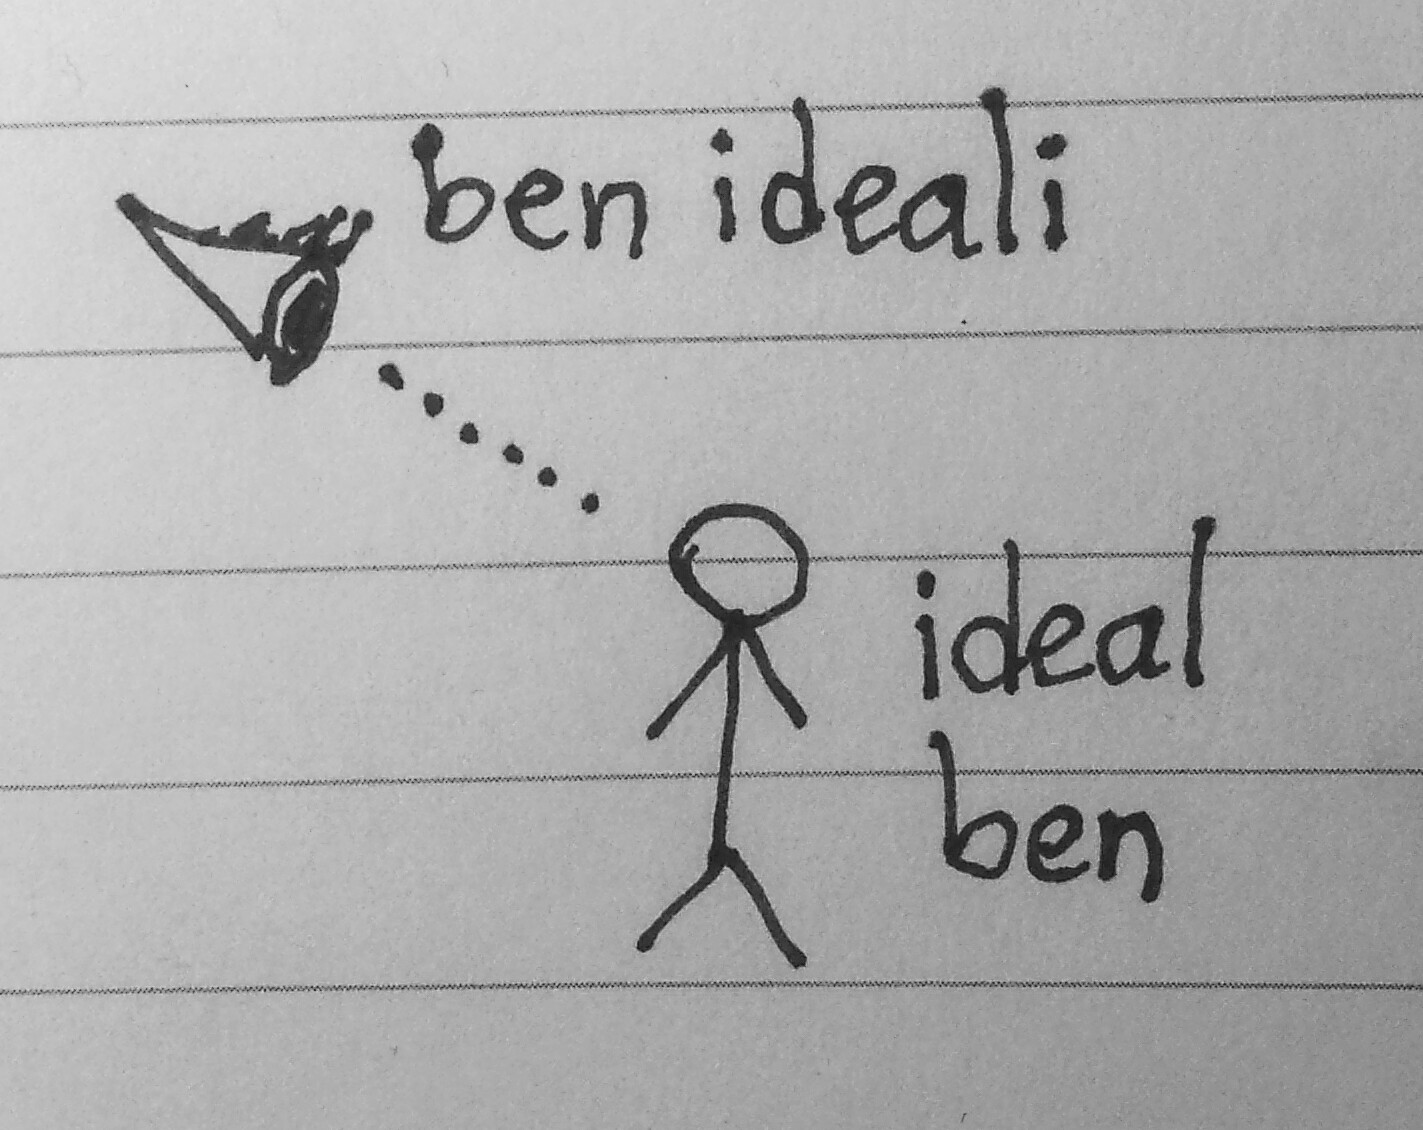 ben ideali
ideal
ben